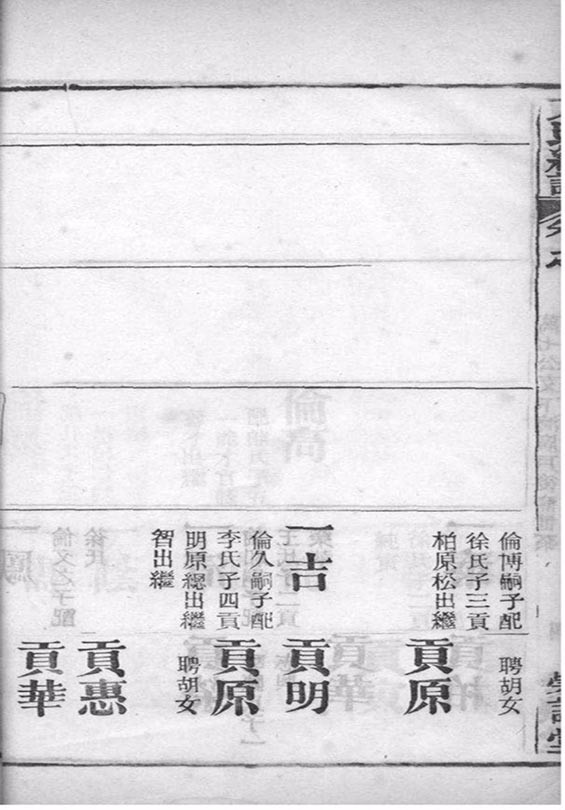 倫博嗣子配
徐氏子三貢
柏原松出繼
一吉
倫久嗣子配
李氏子四貢
明原總出繼
智出繼
聘胡女
貢原
貢明
貢原
聘胡女
貢惠
貢華